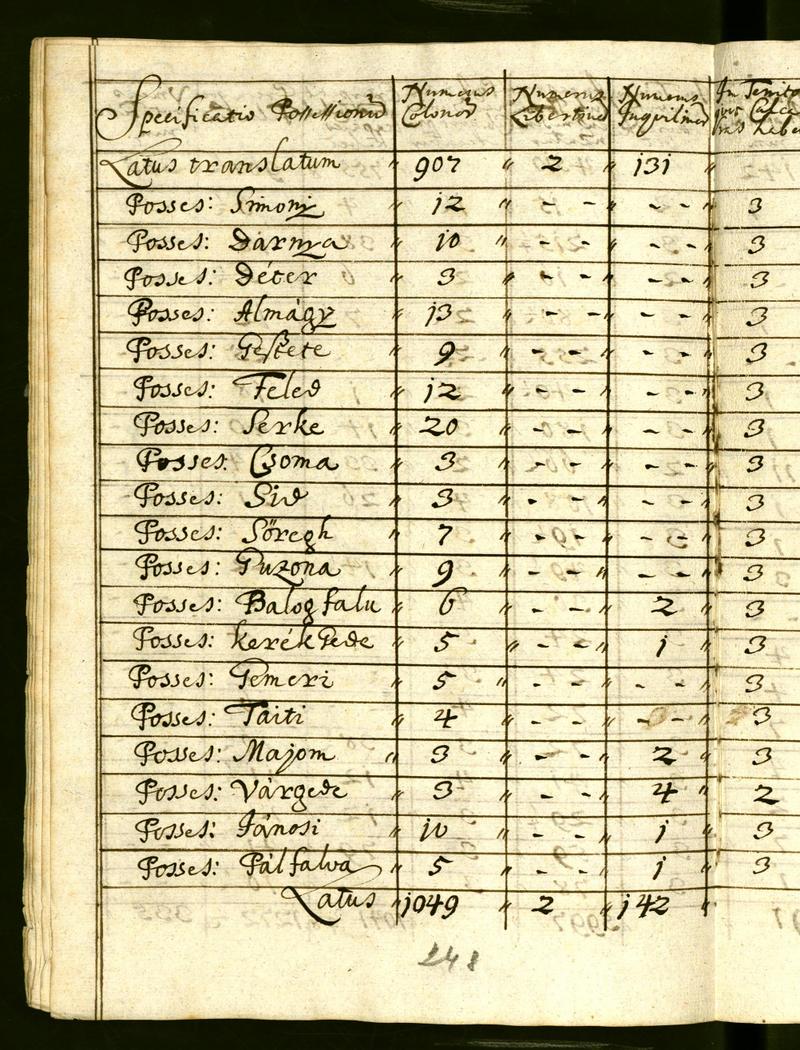 Specificatio Possessionũ Numerus Colonorũ Numerus Libertinorũ Numerus Inquilinorũ In
Latus translatum " 907 " 2 " 131 "
Posses: Simonÿ " 12 " - - " - - " 3
Posses: Darnÿa " 10 " - - " - - " 3
Posses: Déter " 3 " - - " - - " 3
Posses: Almágÿ " 13 " - - " - - " 3
Posses: Gesztete " 9 " - - " - - " 3
Posses: Feled " 12 " - - " - - " 3
Posses: Serke " 20 " - - " - - " 3
Posses: Csoma " 3 " - - " - - " 3
Posses: Sid " 3 " - - " - - " 3
Posses: Sőregh " 7 " - - " - - " 3
Posses: Guzona " 9 " - - " - - " 3
Posses: Balog falu " 6 " - - " 2 " 3
Posses: kerék Gede " 5 " - - " 1 " 3
Posses: Gemeri " 5 " - - " - - " 3
Posses: Taiti " 4 " - - " - - " 3
Posses: Majom " 3 " - - " 2 " 3
Posses: Várgede " 3 " - - " 4 " 2
Posses: Jánosi " 10 " - - " 1 " 3
Posses: Pálfalva " 5 " - - " 1 " 3
Latus " 1049 " 2 " 142 "
248